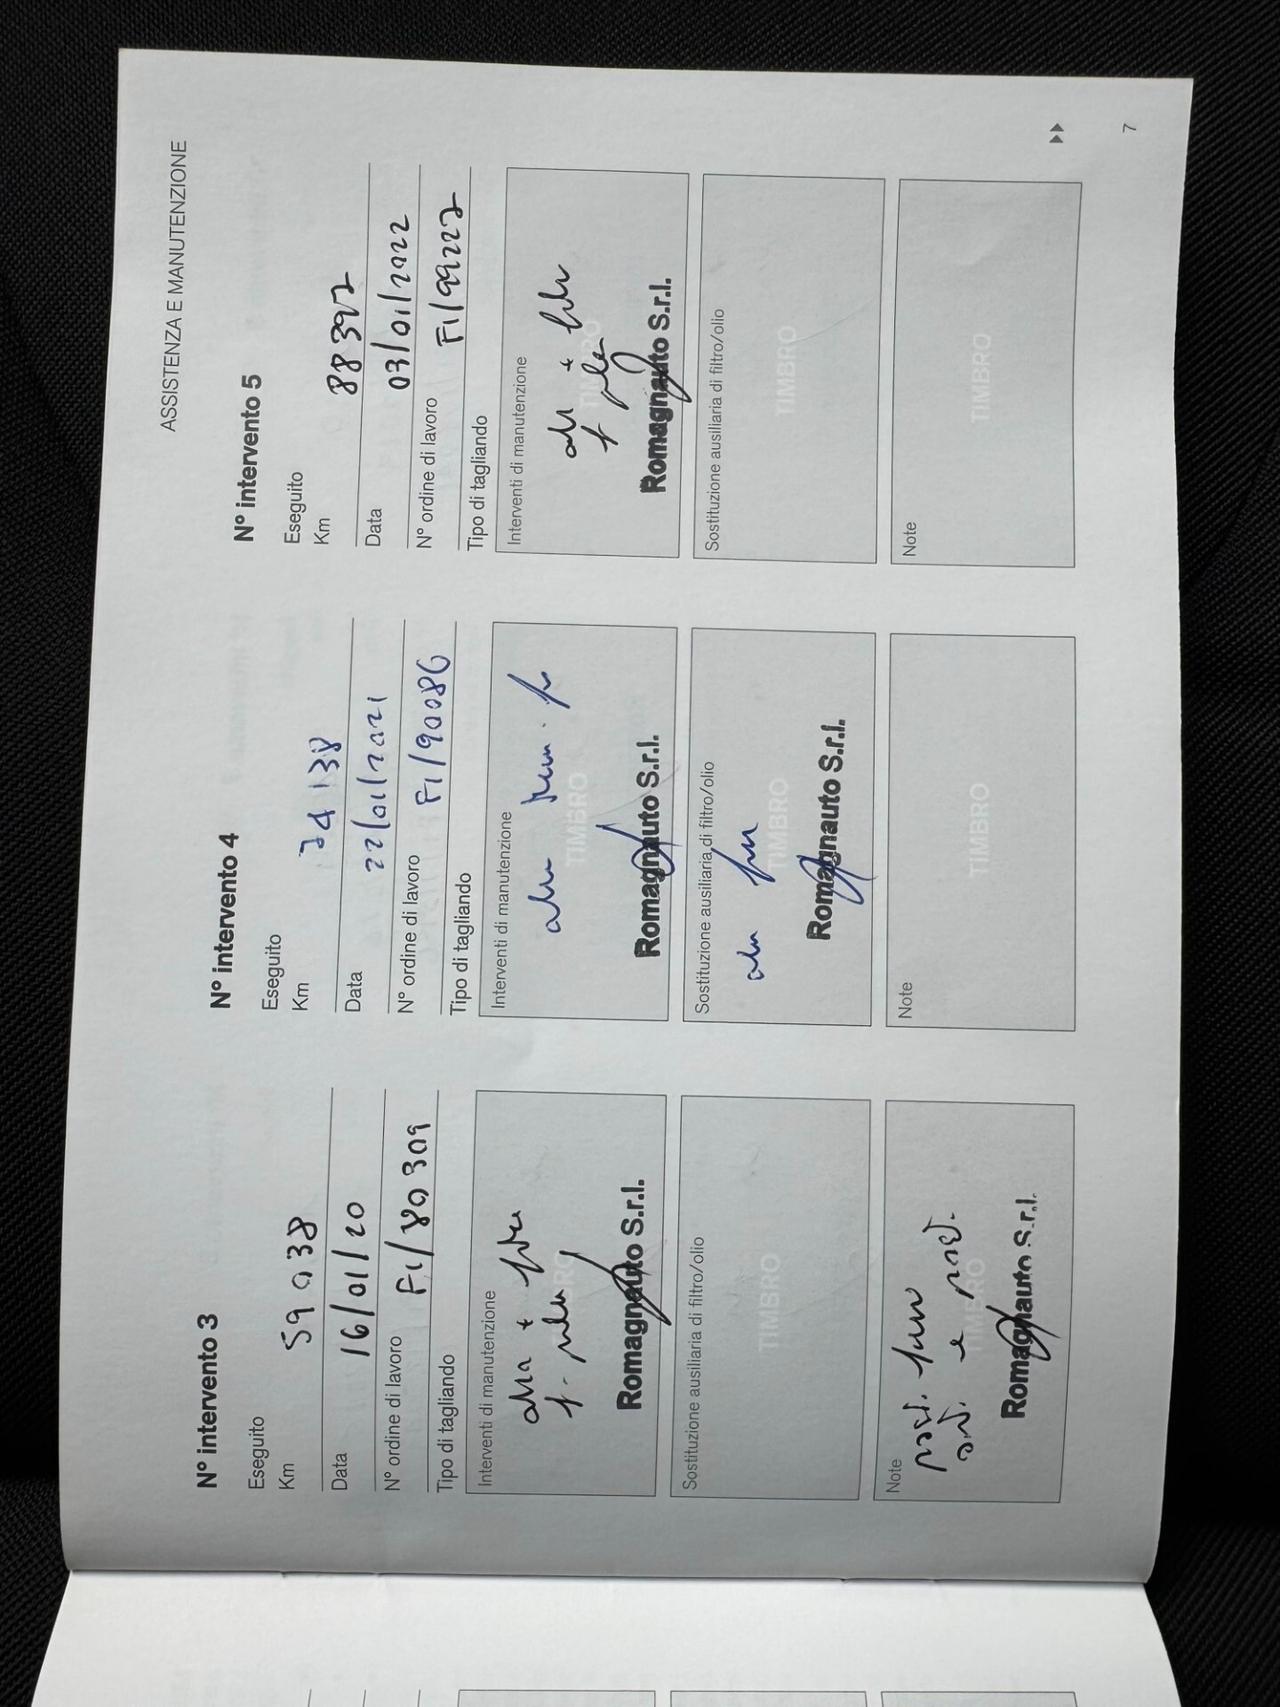 ASSISTENZA E MANUTENZIONE
N° intervento 3
Eseguito
Km 59038
Data 16/01/20
N° ordine di lavoro F1/80309
Tipo di tagliando
Interventi di manutenzione
TIMBRO
Romagnauto S.r.l.
Sostituzione ausiliaria di filtro/olio
TIMBRO
Note
TIMBRO
Romagnauto S.r.l.
N° intervento 4
Eseguito
Km 74138
Data 22/01/2021
N° ordine di lavoro F1/90086
Tipo di tagliando
Interventi di manutenzione
TIMBRO
Romagnauto S.r.l.
Sostituzione ausiliaria di filtro/olio
TIMBRO
Romagnauto S.r.l.
Note
TIMBRO
N° intervento 5
Eseguito
Km 88397
Data 03/01/2022
N° ordine di lavoro F1/99227
Tipo di tagliando
Interventi di manutenzione
TIMBRO
Romagnauto S.r.l.
Sostituzione ausiliaria di filtro/olio
TIMBRO
Note
TIMBRO
7